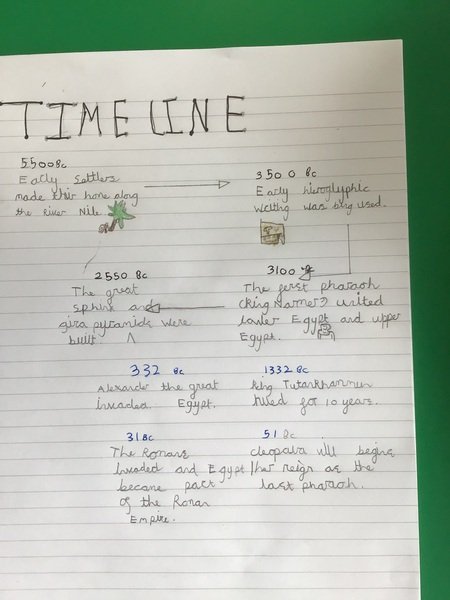 TIMELINE
5500 BC
Early Settlers
made thir home along
the River Nile
3500 BC
Early hieroglyphic
was being used.
3100
The first pharaoh
(King Narmer) united
lower Egypt and upper
Egypt.
2550 BC
The great
sphinx and
giza pyramids were
built.
1332 BC
King Tutankhammun
ruled for 10 years.
332 BC
Alexander the great
invaded Egypt.
51 BC
cleopatra will begine
her reign as the
last pharaoh.
31 BC
The Romans
invaded and Egypt
became part
of the Roman
Empire.